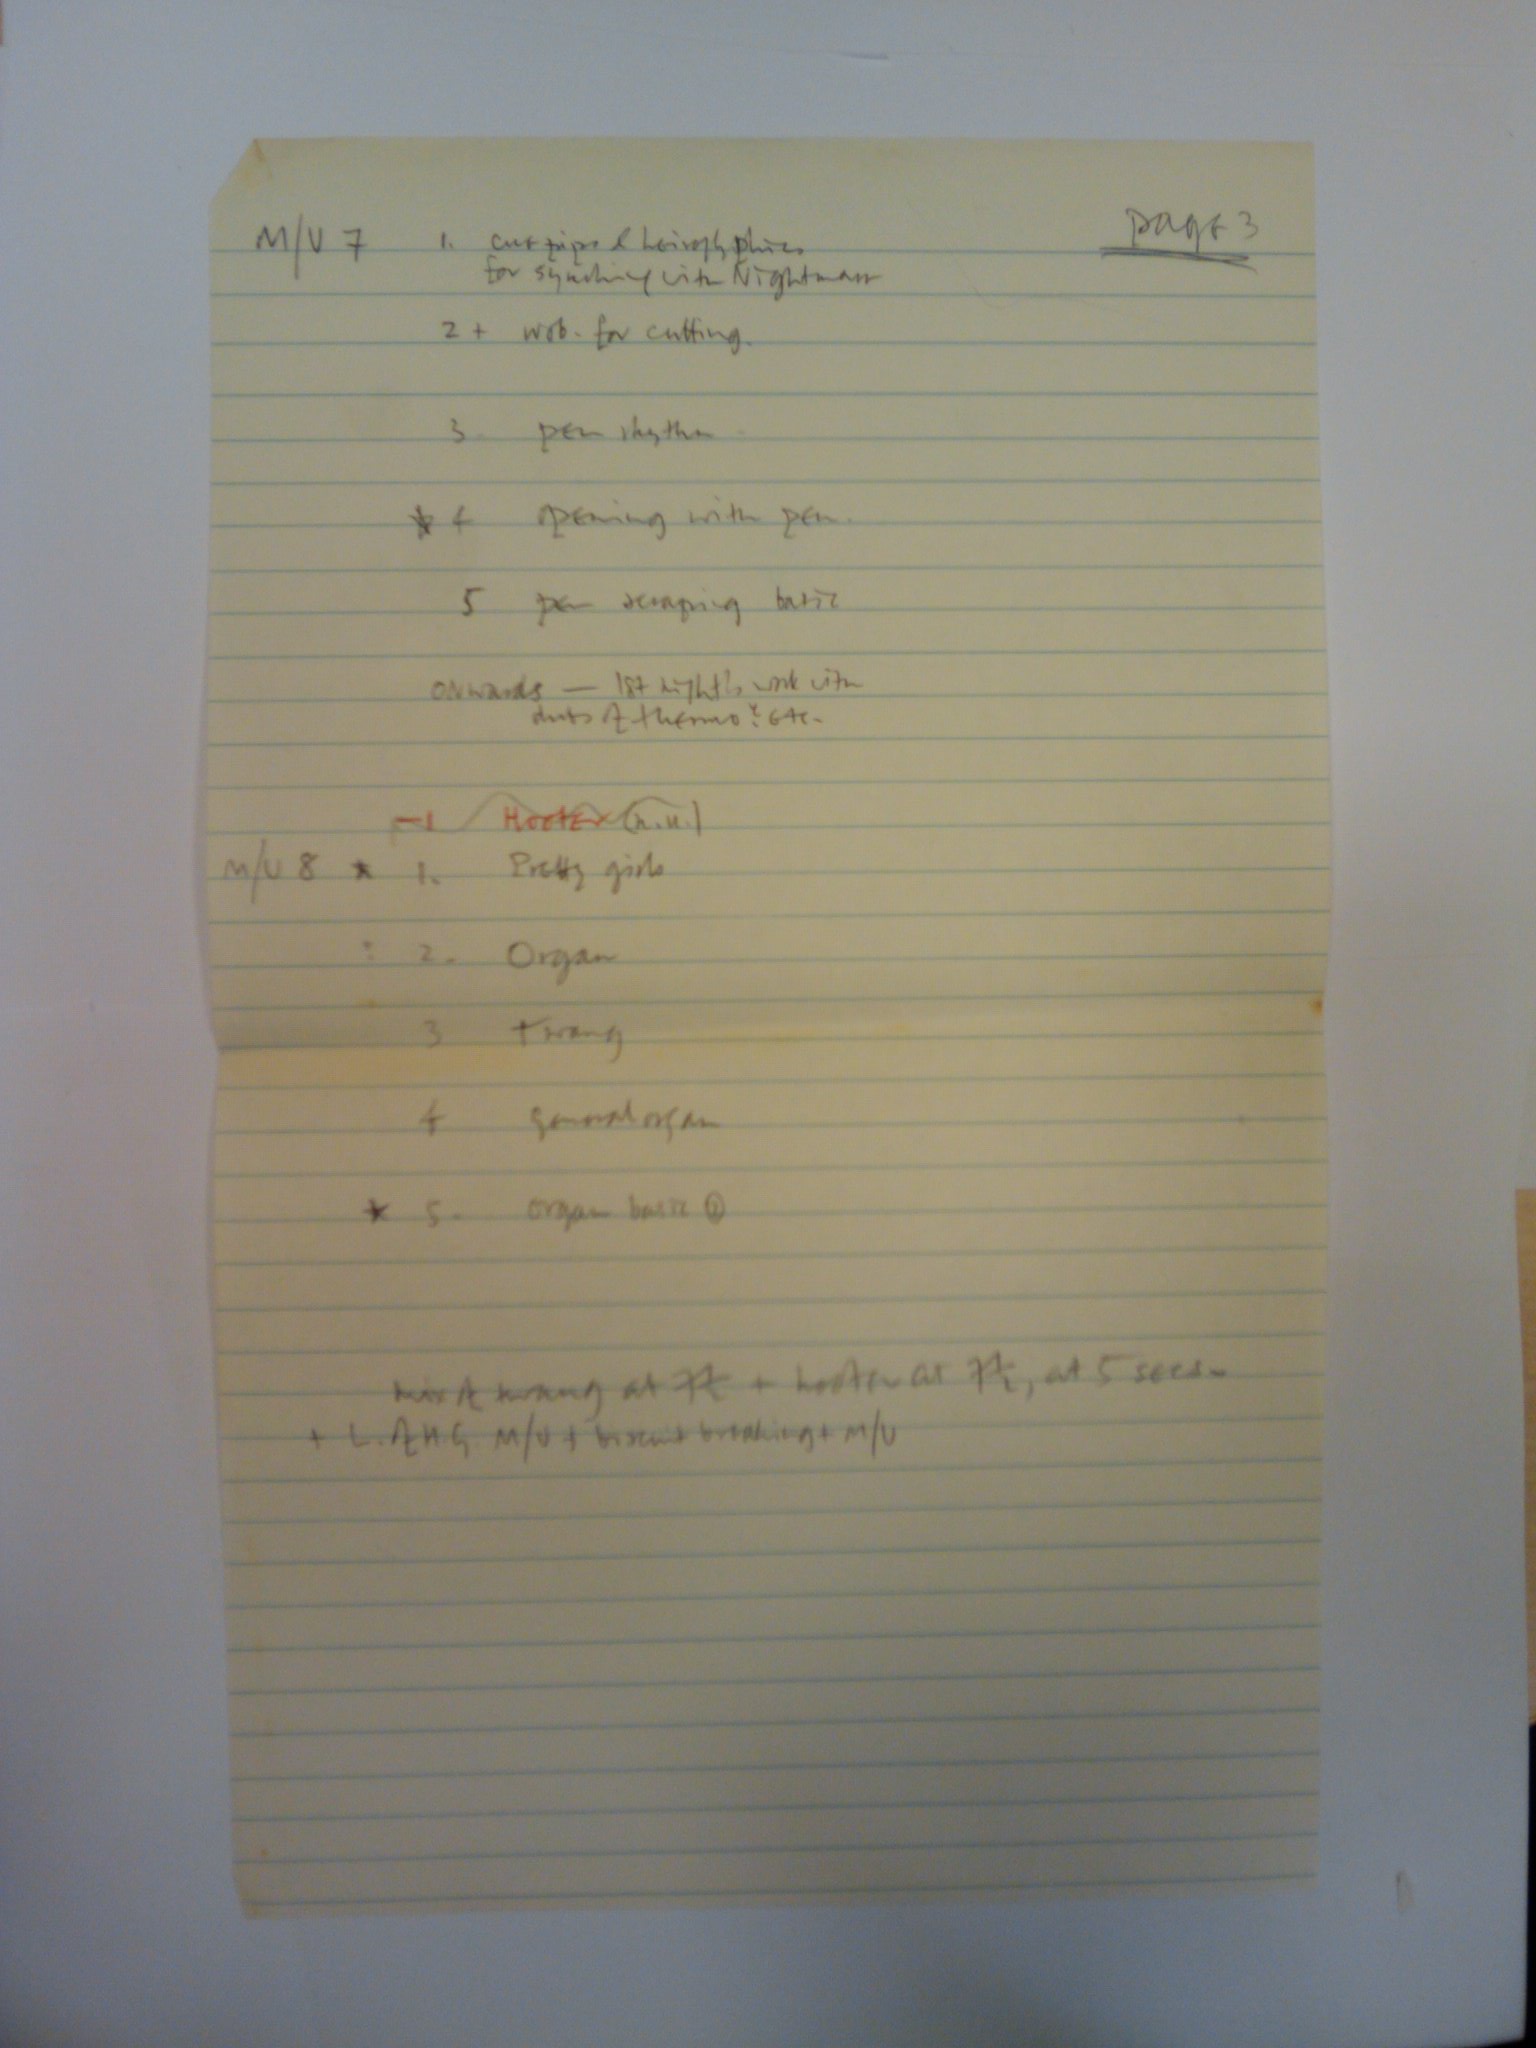 page 3
M/V 7 1. cut pips & heiroglyphics
for synching with Nightmare
2+ wob. for cutting.
3. pen rhythm
* 4 opening with pen.
5 pen scraping basic
onwards — 1st night's work with
of thermo etc.
1 Hooter (n.u.)
M/V 8 * 1. Pretty girls
: 2. Organ
3 twang
4 general organ
* 5. organ basic
mix of twang at 7½ + hooter at 7½, at 5 secs.
+ L. of H.G M/V + biscuit breaking + M/V